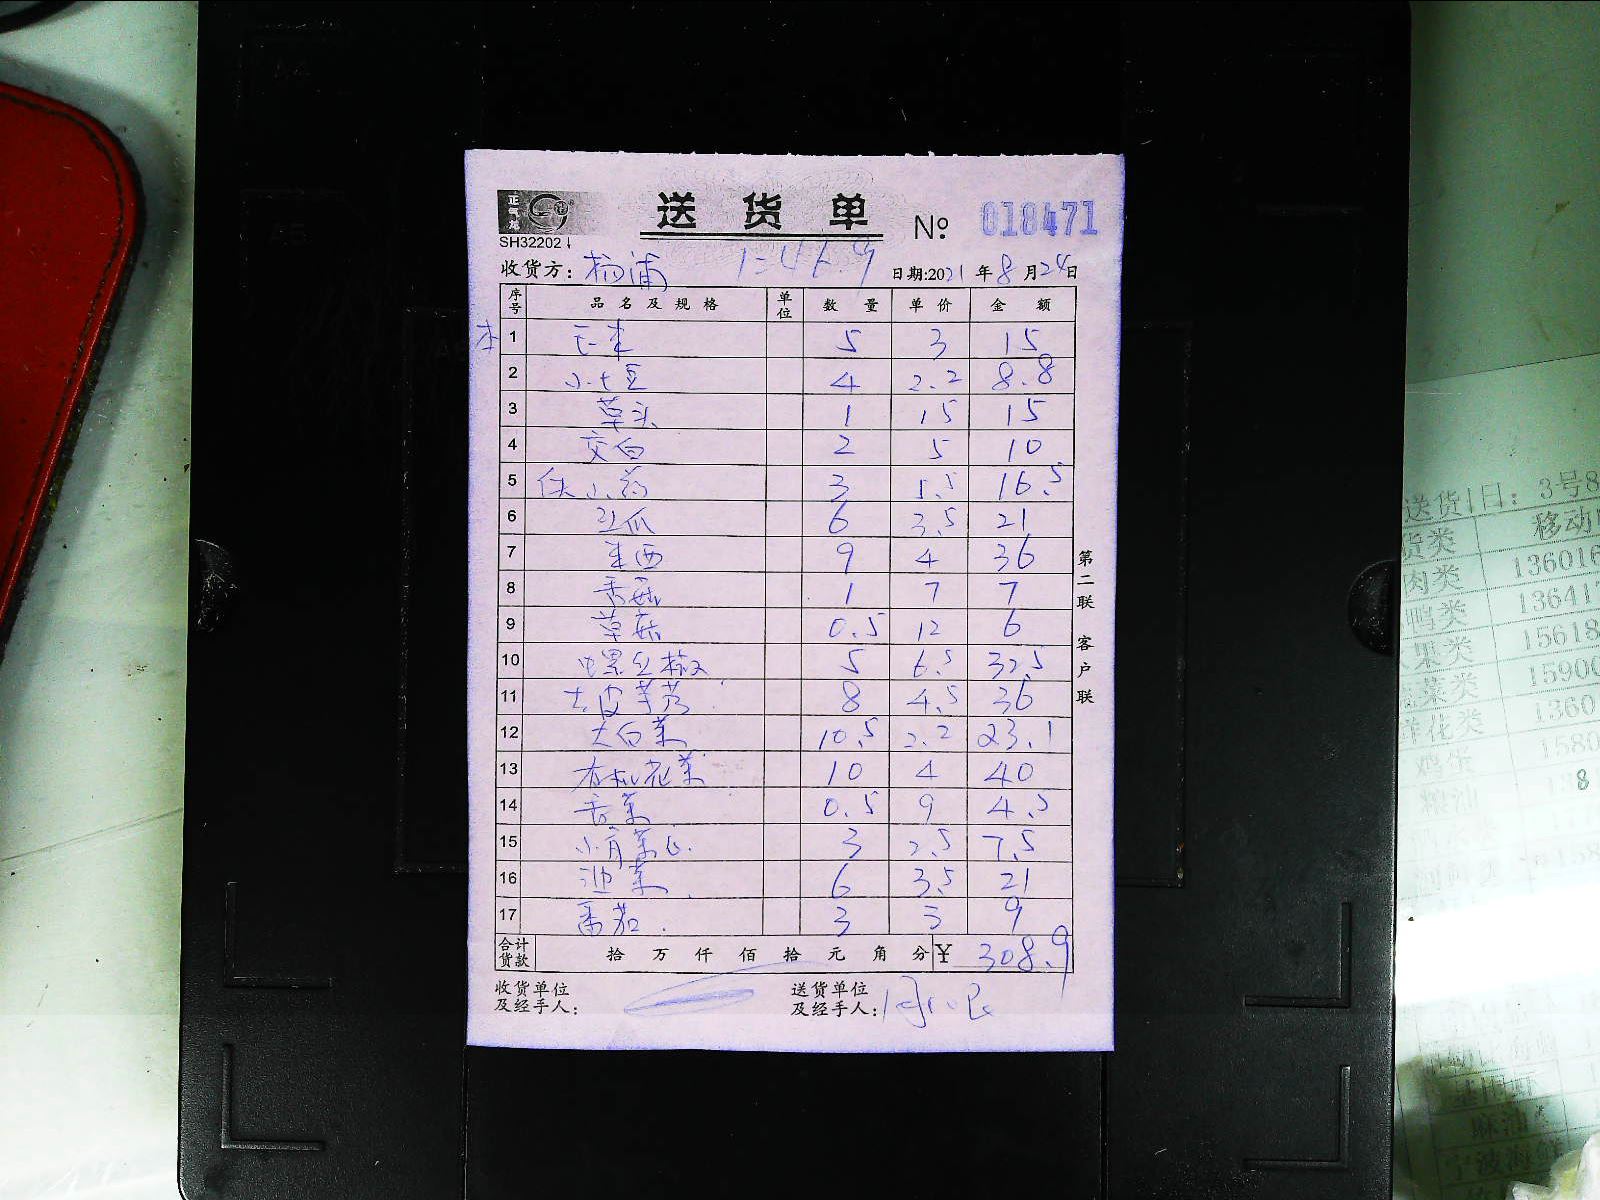 正气龙
送货单 № 018471
SH32202
收货方: 杨浦 日期:2021年8月24日
序号 品名及规格 单位 数量 单价 金额
1 5 3 15
2 小土豆 4 2.2 8.8
3 草头 1 15 15
4 交白 2 5 10
5 铁山药 3 5.5 16.5
6 瓜 6 3.5 21
7 9 4 36
8 香菇 1 7 7
9 草菇 0.5 12 6
10 螺丝椒 5 6.5 32.5
11 去皮芋艿 8 4.5 36
12 大白菜 10.5 2.2 23.1
13 有机花菜 10 4 40
14 香菜 0.5 9 4.5
15 小青菜 3 2.5 7.5
16 菜 6 3.5 21
17 番茄 3 3 9
合计货款 拾万仟佰拾元角分 ¥ 308.9
收货单位及经手人: 送货单位及经手人:
第二联 客户联
送货1日: 3号8
货类 移动
肉类 13601
鸭类 1364
果类 15618
菜类 1590
鲜花类 1360
1580
麻油
宁波海